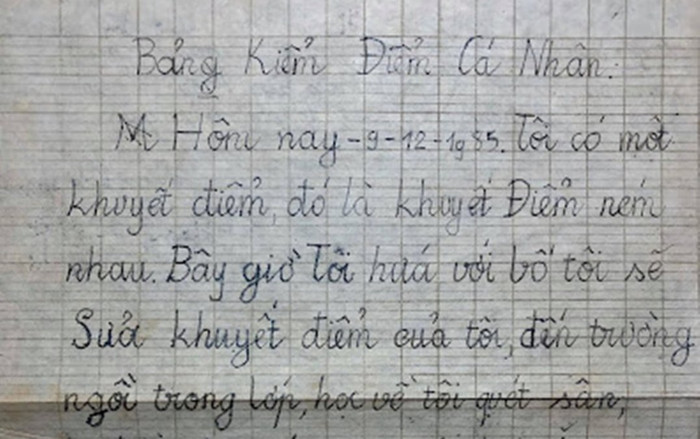 Bảng Kiểm Điểm Cá Nhân.
Hôm nay-9-12-1985. Tôi có một
khuyết điểm, đó là khuyết Điểm ném
nhau. Bây giờ Tôi hứa với bố tôi sẽ
Sửa khuyết điểm của tôi, đến trường
ngồi trong lớp, học về tôi quét sân,